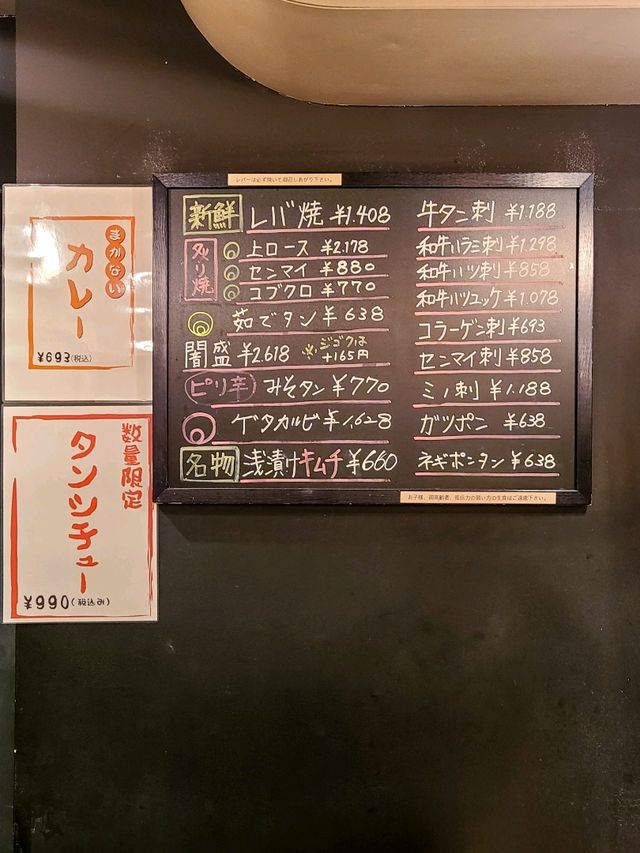 レバーは必ず焼いて御召しあがり下さい。
新鮮 レバ焼 ¥1.408
炙り焼
上ロース ¥2.178
センマイ ¥880
コブクロ ¥770
茹でタン ¥638
闇盛 ¥2.618 ※ジゴクは+165円
ピリ辛 みそタン ¥770
ゲタカルビ ¥1,628
名物 浅漬けキムチ ¥660
牛タン刺 ¥1.188
和牛ハラミ刺 ¥1.298
和牛ハツ刺 ¥858
和牛ハツユッケ ¥1.078
コラーゲン刺 ¥693
センマイ刺 ¥858
ミノ刺 ¥1.188
ガツポン ¥638
ネギポンタン ¥638
お子様、御高齢者、抵抗力の弱い方の生食はご遠慮下さい。
まかない
カレー
¥693(税込)
数量限定
タンシチュー
¥990(税込み)